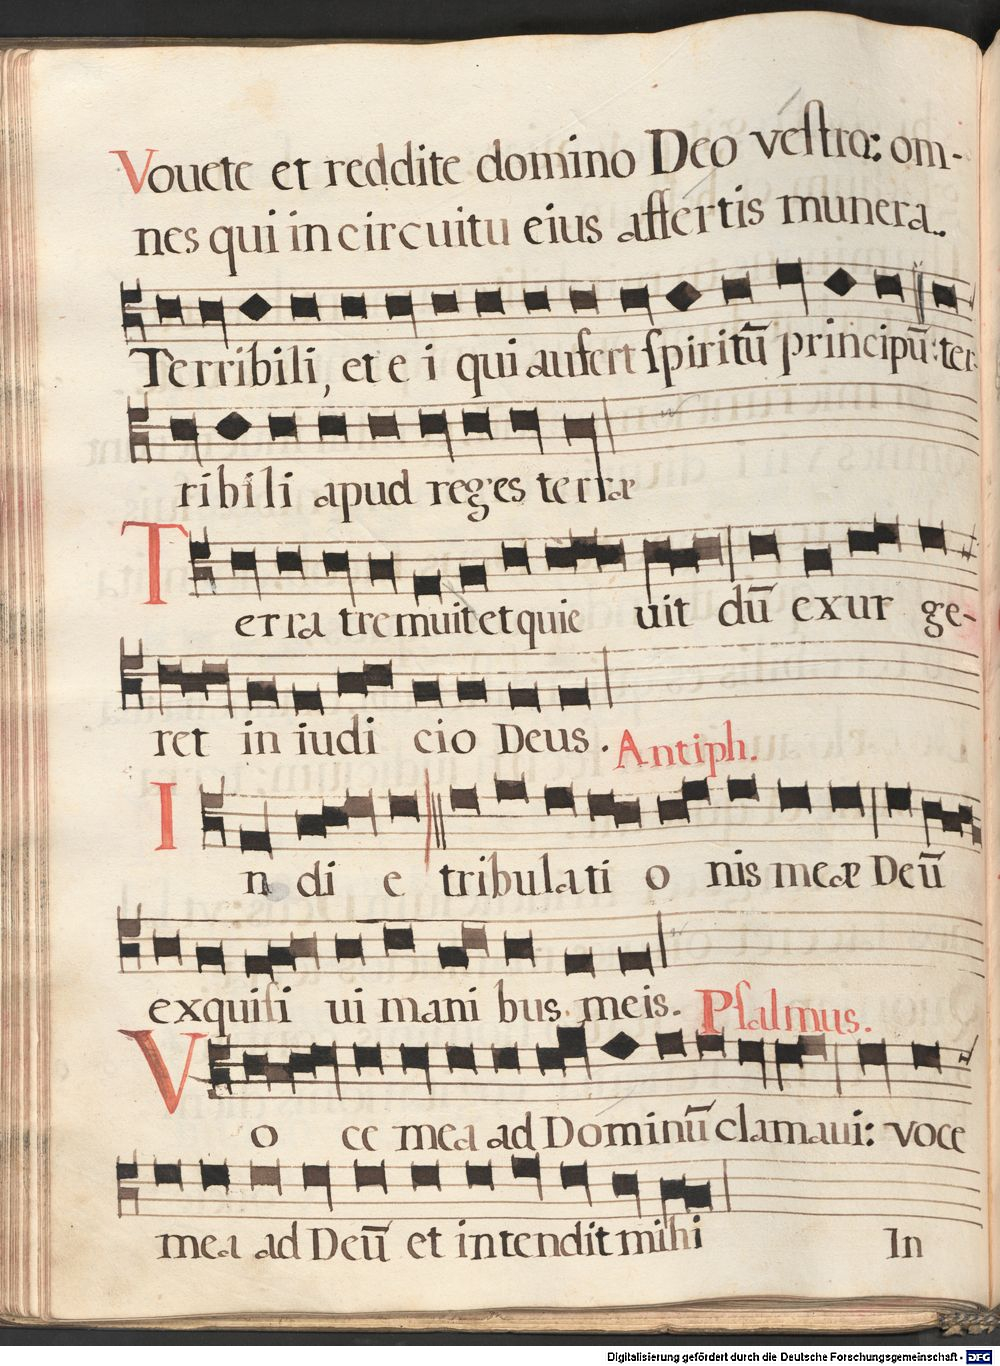 Vouete et reddite domino Deo vestro: om-
nes qui in circuitu eius affertis munera.
Terribili, et e i qui aufert spiritū principū: ter-
ribili apud reges terræ
Terra tremuit et quie uit dū exur ge-
ret in iudi cio Deus. Antiph.
In di e tribulati o nis meæ Deū
exquisi ui mani bus meis. Psalmus.
Vo ce mea ad Dominū clamaui: voce
mea ad Deū et intendit mihi
In
Digitalisierung gefördert durch die Deutsche Forschungsgemeinschaft - DFG